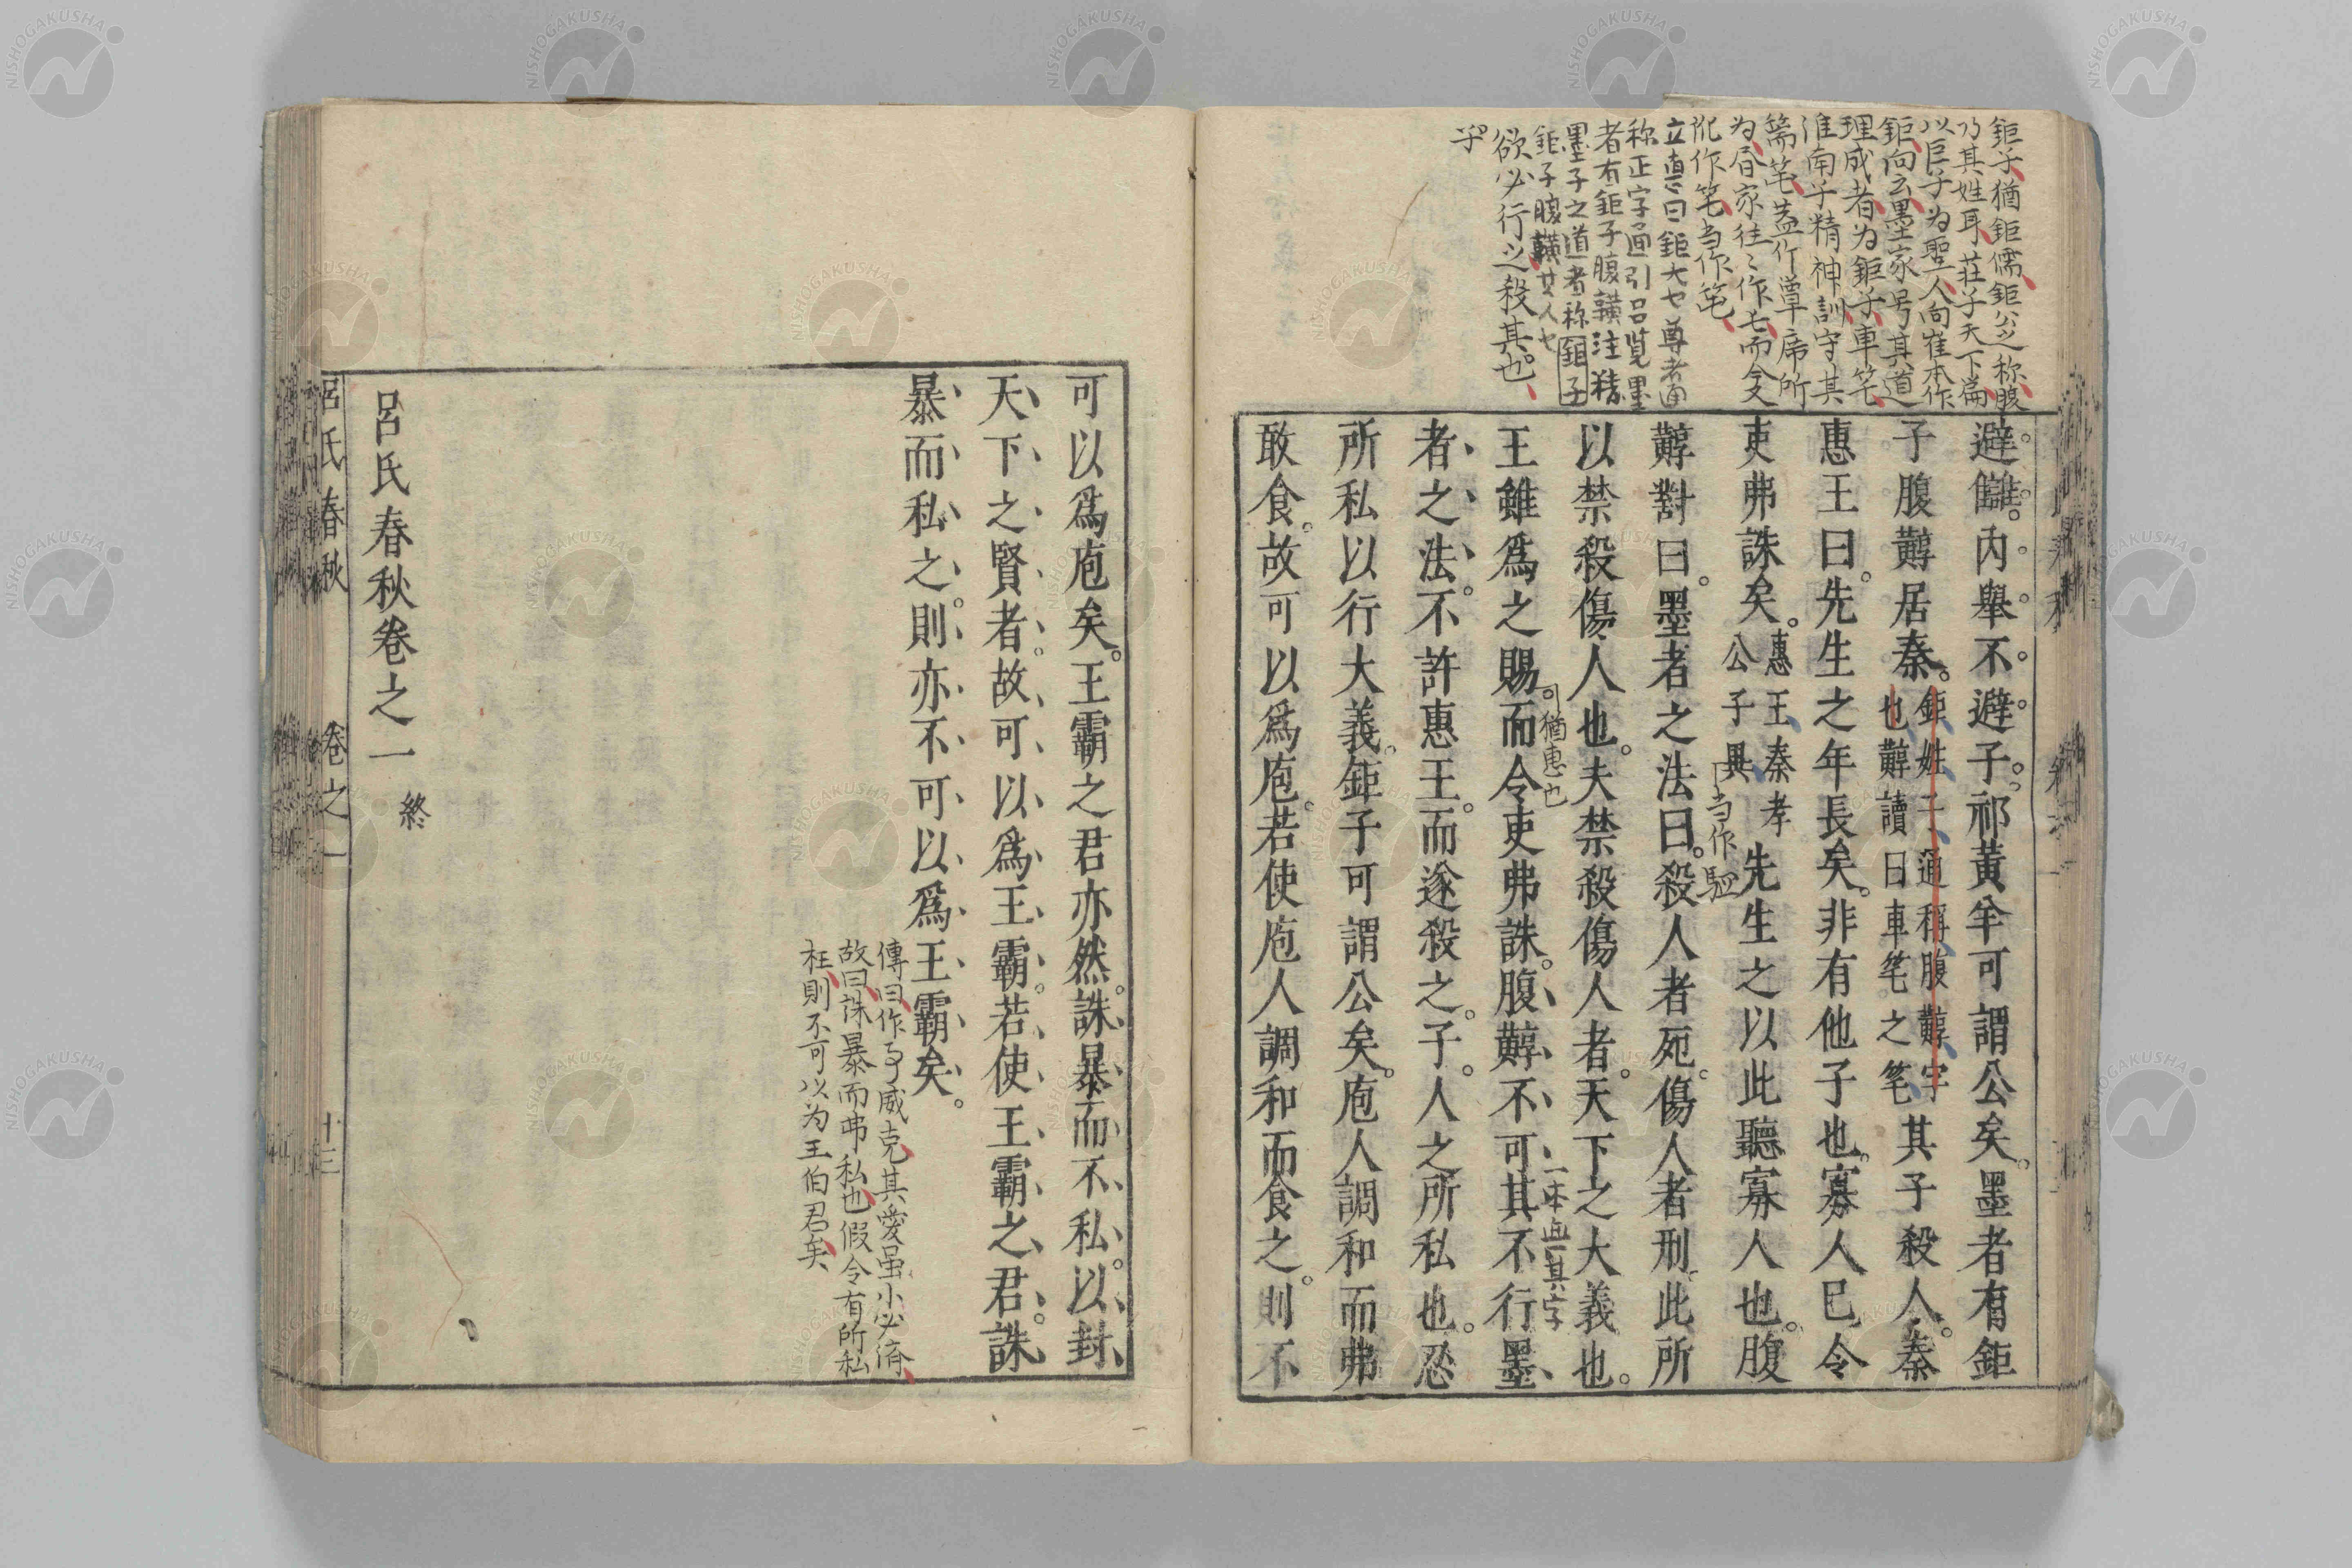 鉅子猶鉅儒鉅公之称腹
乃其姓耳莊子天下篇
以巨子为聖人向崔本作
鉅向云墨家号其道
理成者为鉅子車笔
淮南子精神訓守其
篅笔盖作簟席所
为昬家往〻作乇而今
作笔当作笔
立悳曰鉅大也尊者通
称正字通引呂覧墨
者有鉅子腹䵍注積
墨子之道者称鉏子
鉅子腹䵍其人也
欲必行之殺其也
乎
避讎內舉不避子祁黃羊可謂公矣墨者有鉅
子腹䵍居秦鉅姓子通稱腹䵍字也䵍讀曰車笔之笔其子殺人秦
惠王曰先生之年長矣非有他子也寡人已令
吏弗誅矣惠王秦孝公子異先生之以此聽寡人也腹
当作駟
䵍對曰墨者之法曰殺人者死傷人者刑此所
以禁殺傷人也夫禁殺傷人者天下之大義也
王雖爲之賜而令吏弗誅腹䵍不可其不行墨
可猶惠也
一本無其字
者之法不許惠王而遂殺之子人之所私也忍
所私以行大義鉅子可謂公矣庖人調和而弗
敢食故可以爲庖若使庖人調和而食之則不
可以爲庖矣王霸之君亦然誅暴而不私以封
天下之賢者故可以爲王霸若使王霸之君誅
暴而私之則亦不可以爲王霸矣
傳曰作事威克其愛虽小必済
故曰誅暴而弗私也假令有所私
枉則不可以为王伯君矣
呂氏春秋卷之一 終
呂氏春秋 卷之一 十三
NISHOGAKUSHA